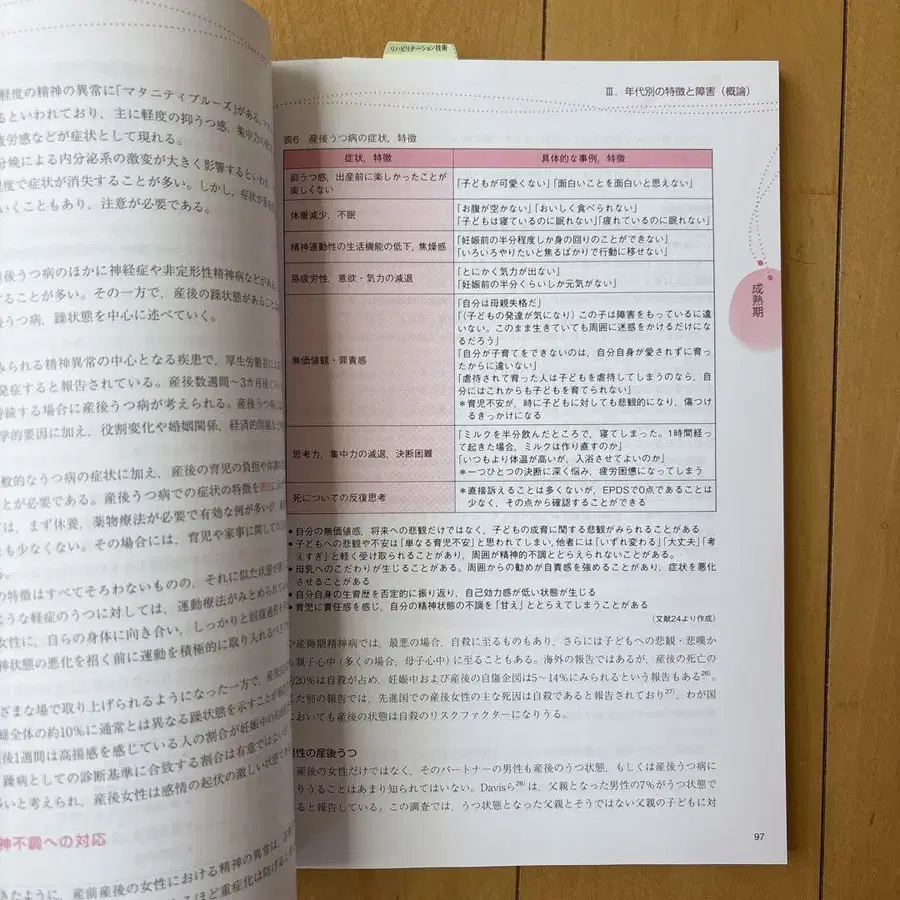 軽度の精神の異常に「マタニティブルーズ」がある。
るといわれており，主に軽度の抑うつ感，集中力の
疲労感などが症状として現れる。
分娩による内分泌系の激変が大きく影響するといわれ
程度で症状が消失することが多い。しかし，症状が
いくこともあり，注意が必要である。
産後うつ病のほかに神経症や非定形性精神病などがあ
することが多い。その一方で，産後の躁状態があること
後うつ病，躁状態を中心に述べていく。
みられる精神異常の中心となる疾患で，厚生労働省によ
発症すると報告されている。産後数週間〜3カ月後くら
持続する場合に産後うつ病が考えられる。産後うつ病に
学的要因に加え，役割変化や婚姻関係，経済的問題など
般的なうつ病の症状に加え，産後の育児の負担や体調の
とが必要である。産後うつ病での症状の特徴を表6に
は，まず休養，薬物療法が必要で有効な例が多いが，
も少なくない。その場合には，育児や家事に関しての
る。
の特徴はすべてそろわないものの，それに似た状態を
ような軽症のうつに対しては，運動療法がみとめられて
女性に，自らの身体に向き合い，しっかりと回復過程を
神状態の悪化を招く前に運動を積極的に取り入れるべき
ざまな場で取り上げられるようになった一方で，産後
婦全体の約10%に通常とは異なる躁状態を示すことが
後1週間は高揚感を感じている人の割合が妊娠中の
，躁病としての診断基準に合致する割合は有意ではない
いと考えられ，産後女性は感情の起伏の激しい状態で
神不調への対応
きたように，産前産後の女性における精神の異常は，
ほど重症化は防げると
リハビリテーション技術
Ⅲ．年代別の特徴と障害（概論）
表6　産後うつ病の症状，特徴
症状，特徴　具体的な事例，特徴
抑うつ感，出産前に楽しかったことが　「子どもが可愛くない」「面白いことを面白いと思えない」
楽しくない
体重減少，不眠　「お腹が空かない」「おいしく食べられない」
「子どもは寝ているのに眠れない」「疲れているのに眠れない」
精神運動性の生活機能の低下，焦燥感　「妊娠前の半分程度しか身の回りのことができない」
「いろいろやりたいと焦るばかりで行動に移せない」
易疲労性，意欲・気力の減退　「とにかく気力が出ない」
「妊娠前の半分くらいしか元気がない」
無価値観・罪責感　「自分は母親失格だ」
「（子どもの発達が気になり）この子は障害をもっているに違
いない。このまま生きていても周囲に迷惑をかけるだけにな
るだろう」
「自分が子育てをできないのは，自分自身が愛されずに育っ
たからに違いない」
「虐待されて育った人は子どもを虐待してしまうのなら，自
分にはこれからも子どもを育てられない」
＊育児不安が，時に子どもに対しても悲観的になり，傷つけ
るきっかけになる
思考力，集中力の減退，決断困難　「ミルクを半分飲んだところで，寝てしまった。1時間経っ
て起きた場合，ミルクは作り直すのか」
「いつもより体温が高いが，入浴させてよいのか」
＊一つひとつの決断に深く悩み，疲労困憊になってしまう
死についての反復思考　＊直接訴えることは多くないが，EPDSで0点であることは
少なく，その点から確認することができる
• 自分の無価値感，将来への悲観だけではなく，子どもの成育に関する悲観がみられることがある
• 子どもへの悲観や不安は「単なる育児不安」と思われてしまい，他者には「いずれ変わる」「大丈夫」「考
えすぎ」と軽く受け取られることがあり，周囲が精神的不調ととらえられないことがある。
• 母乳へのこだわりが生じることがある。周囲からの勧めが自責感を強めることがあり，症状を悪化
させることがある
• 自分自身の生育歴を否定的に振り返り，自己効力感が低い状態が生じる
• 育児に責任感を感じ，自分の精神状態の不調を「甘え」ととらえてしまうことがある
（文献24より作成）
や産褥期精神病では，最悪の場合，自殺に至るものもあり，さらには子どもへの悲観・悲嘆か
ら親子心中（多くの場合，母子心中）に至ることもある。海外の報告ではあるが，産後の死亡の
約20%は自殺が占め，妊娠中および産後の自傷企図は5〜14%にみられるという報告もある26)。
また別の報告では，先進国での産後女性の主な死因は自殺であると報告されており27)，わが国
においても産後の状態は自殺のリスクファクターになりうる。
男性の産後うつ
産後の女性だけではなく，そのパートナーの男性も産後のうつ状態，もしくは産後うつ病に
なりうることはあまり知られてはいない。Davisら28)は，父親となった男性の7%がうつ状態で
あると報告している。この調査では，うつ状態となった父親とそうではない父親の子どもに対
成熟期
97